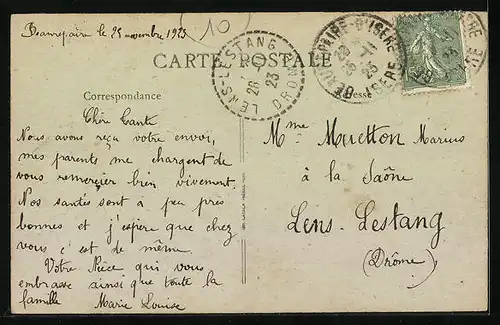 Beaurepaire le 25 novembre 1923
10
CARTE POSTALE
LENS-LESTANG
26
23
DROME
BEAUREPAIRE-D'ISERE
ISERE
Correspondance
Adresse
Chère Tante
Nous avons reçu votre envoi,
mes parents me chargent de
vous remercier bien vivement.
Nos santés sont à peu près
bonnes et j'espère que chez
vous c'est de même.
Votre Nièce qui vous
embrasse ainsi que toute la
famille Marie Louise
Mme Muetton Marius
à la Saône
Lens-Lestang
(Drôme)